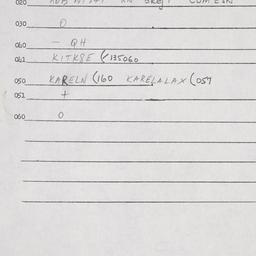 020
030 O
040 - QH
041 KITKSE (135060
050 KARELN (160 KARELALAX (057
051 +
060 O